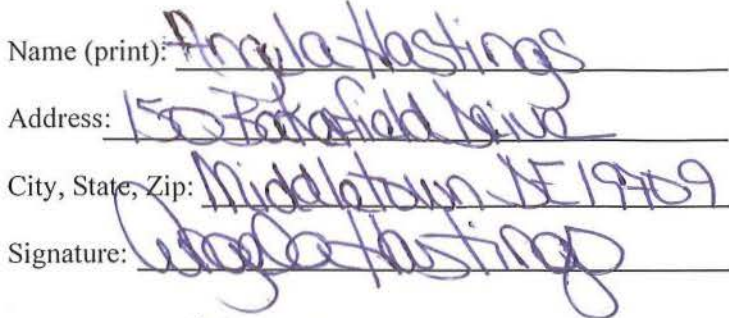 Name (print): Angela Hastings
Address: 150 Bakerfield Drive
City, State, Zip: Middletown DE 19709
Signature: Angela Hastings